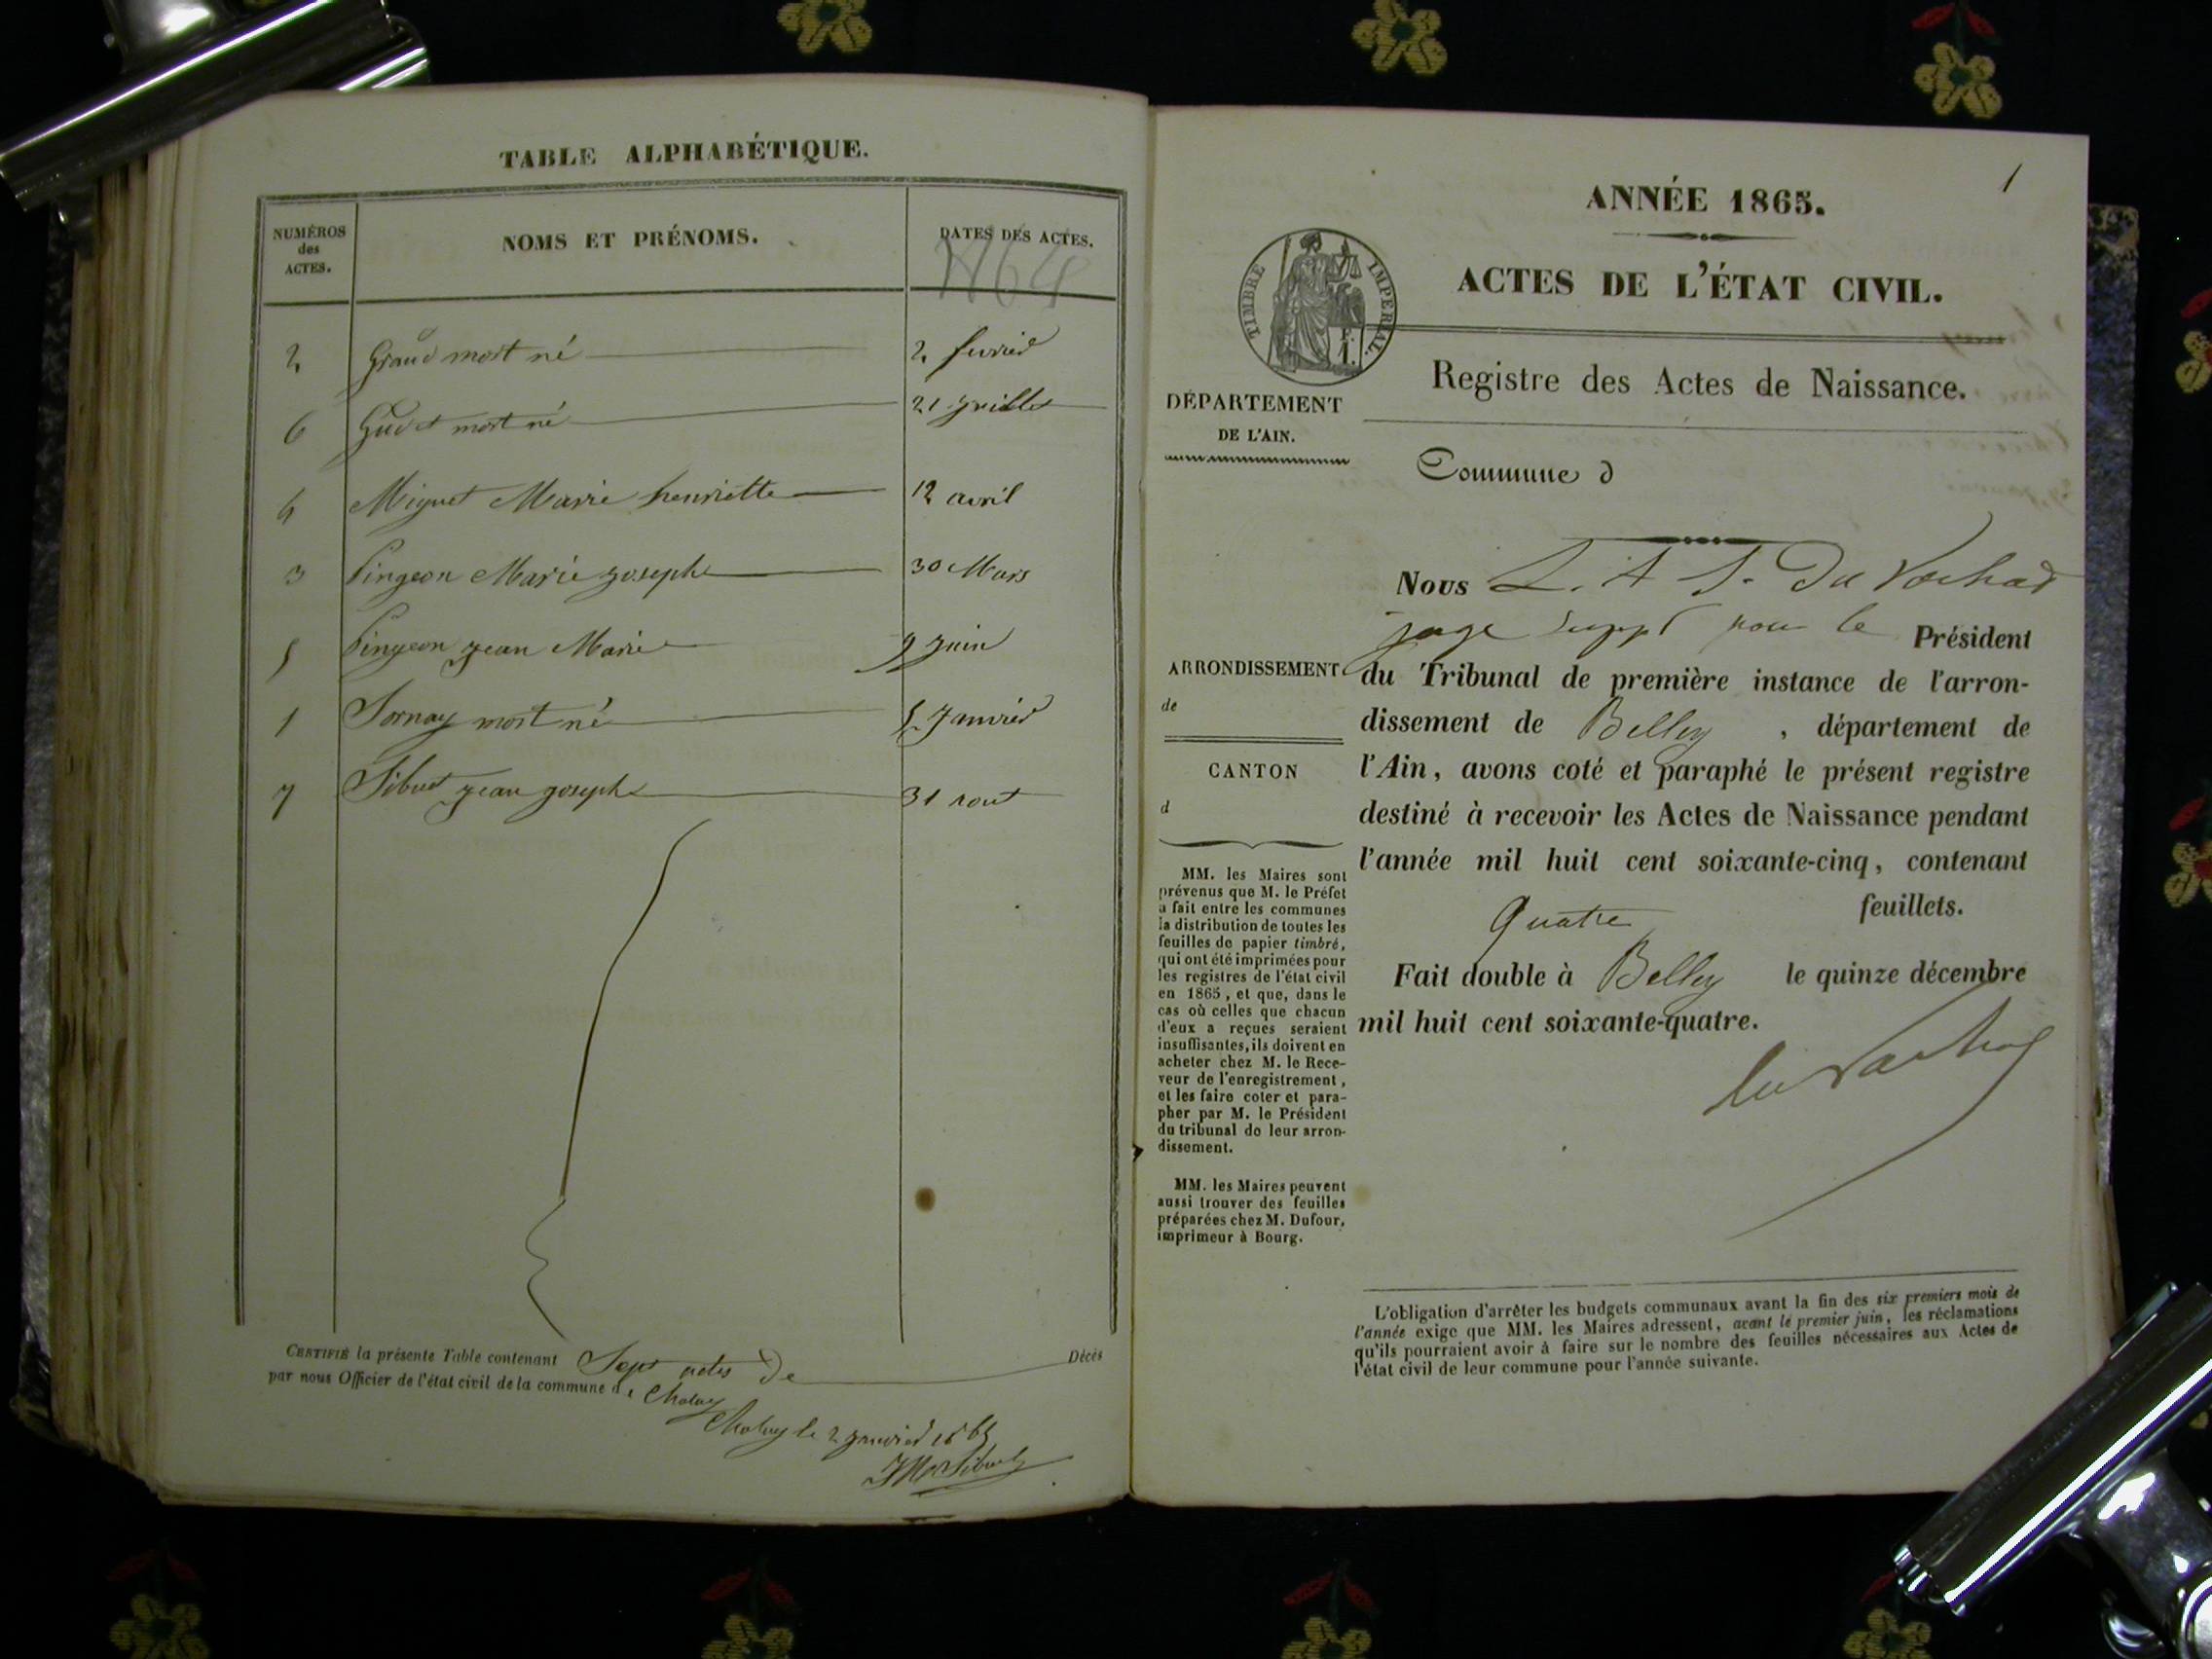 TABLE ALPHABÉTIQUE.
NUMÉROS
des
ACTES.
NOMS ET PRÉNOMS.
DATES DES ACTES.
1864
2 Graud mort né 2 fevrier
6 Gudet mort né 21 juillet
4 Miguet Marie henriette 12 avril
3 Pingeon Marie joseph 30 Mars
5 Pingeon jean Marie 9 juin
1 Sornay mort né 5 Janvier
7 Sibuet jean joseph 31 aout
CERTIFIÉ la présente Table contenant Sept actes De Décès
par nous Officier de l'état civil de la commune de Choluy
Choluy le 2 janvier 1865
1
ANNÉE 1865.
ACTES DE L'ÉTAT CIVIL.
TIMBRE IMPERIAL.
F.
1.
Registre des Actes de Naissance.
DÉPARTEMENT
DE L'AIN.
Commune d
ARRONDISSEMENT
de
CANTON
d
MM. les Maires sont
prévenus que M. le Préfet
a fait entre les communes
la distribution de toutes les
feuilles de papier timbré,
qui ont été imprimées pour
les registres de l'état civil
en 1865, et que, dans le
cas où celles que chacun
d'eux a reçues seraient
insuffisantes, ils doivent en
acheter chez M. le Rece-
veur de l'enregistrement,
et les faire coter et para-
pher par M. le Président
du tribunal de leur arron-
dissement.
MM. les Maires peuvent
aussi trouver des feuilles
préparées chez M. Dufour,
imprimeur à Bourg.
Nous L. A. Du Vachat
juge suppt pour le Président
du Tribunal de première instance de l'arron-
dissement de Belley, département de
l'Ain, avons coté et paraphé le présent registre
destiné à recevoir les Actes de Naissance pendant
l'année mil huit cent soixante-cinq, contenant
Quatre feuillets.
Fait double à Belley le quinze décembre
mil huit cent soixante-quatre.
Du Vachat
L'obligation d'arrêter les budgets communaux avant la fin des six premiers mois de
l'année exige que MM. les Maires adressent, avant le premier juin, les réclamations
qu'ils pourraient avoir à faire sur le nombre des feuilles nécessaires aux Actes de
l'état civil de leur commune pour l'année suivante.